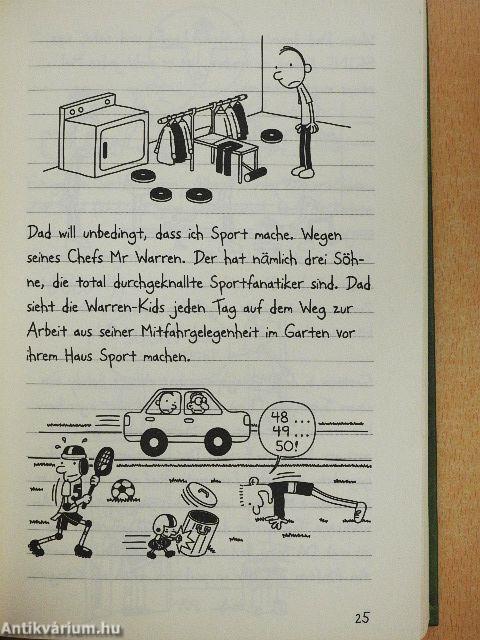 Dad will unbedingt, dass ich Sport mache. Wegen
seines Chefs Mr Warren. Der hat nämlich drei Söh-
ne, die total durchgeknallte Sportfanatiker sind. Dad
sieht die Warren-Kids jeden Tag auf dem Weg zur
Arbeit aus seiner Mitfahrgelegenheit im Garten vor
ihrem Haus Sport machen.
48 ...
49 ...
50!
25
Antikvárium.hu